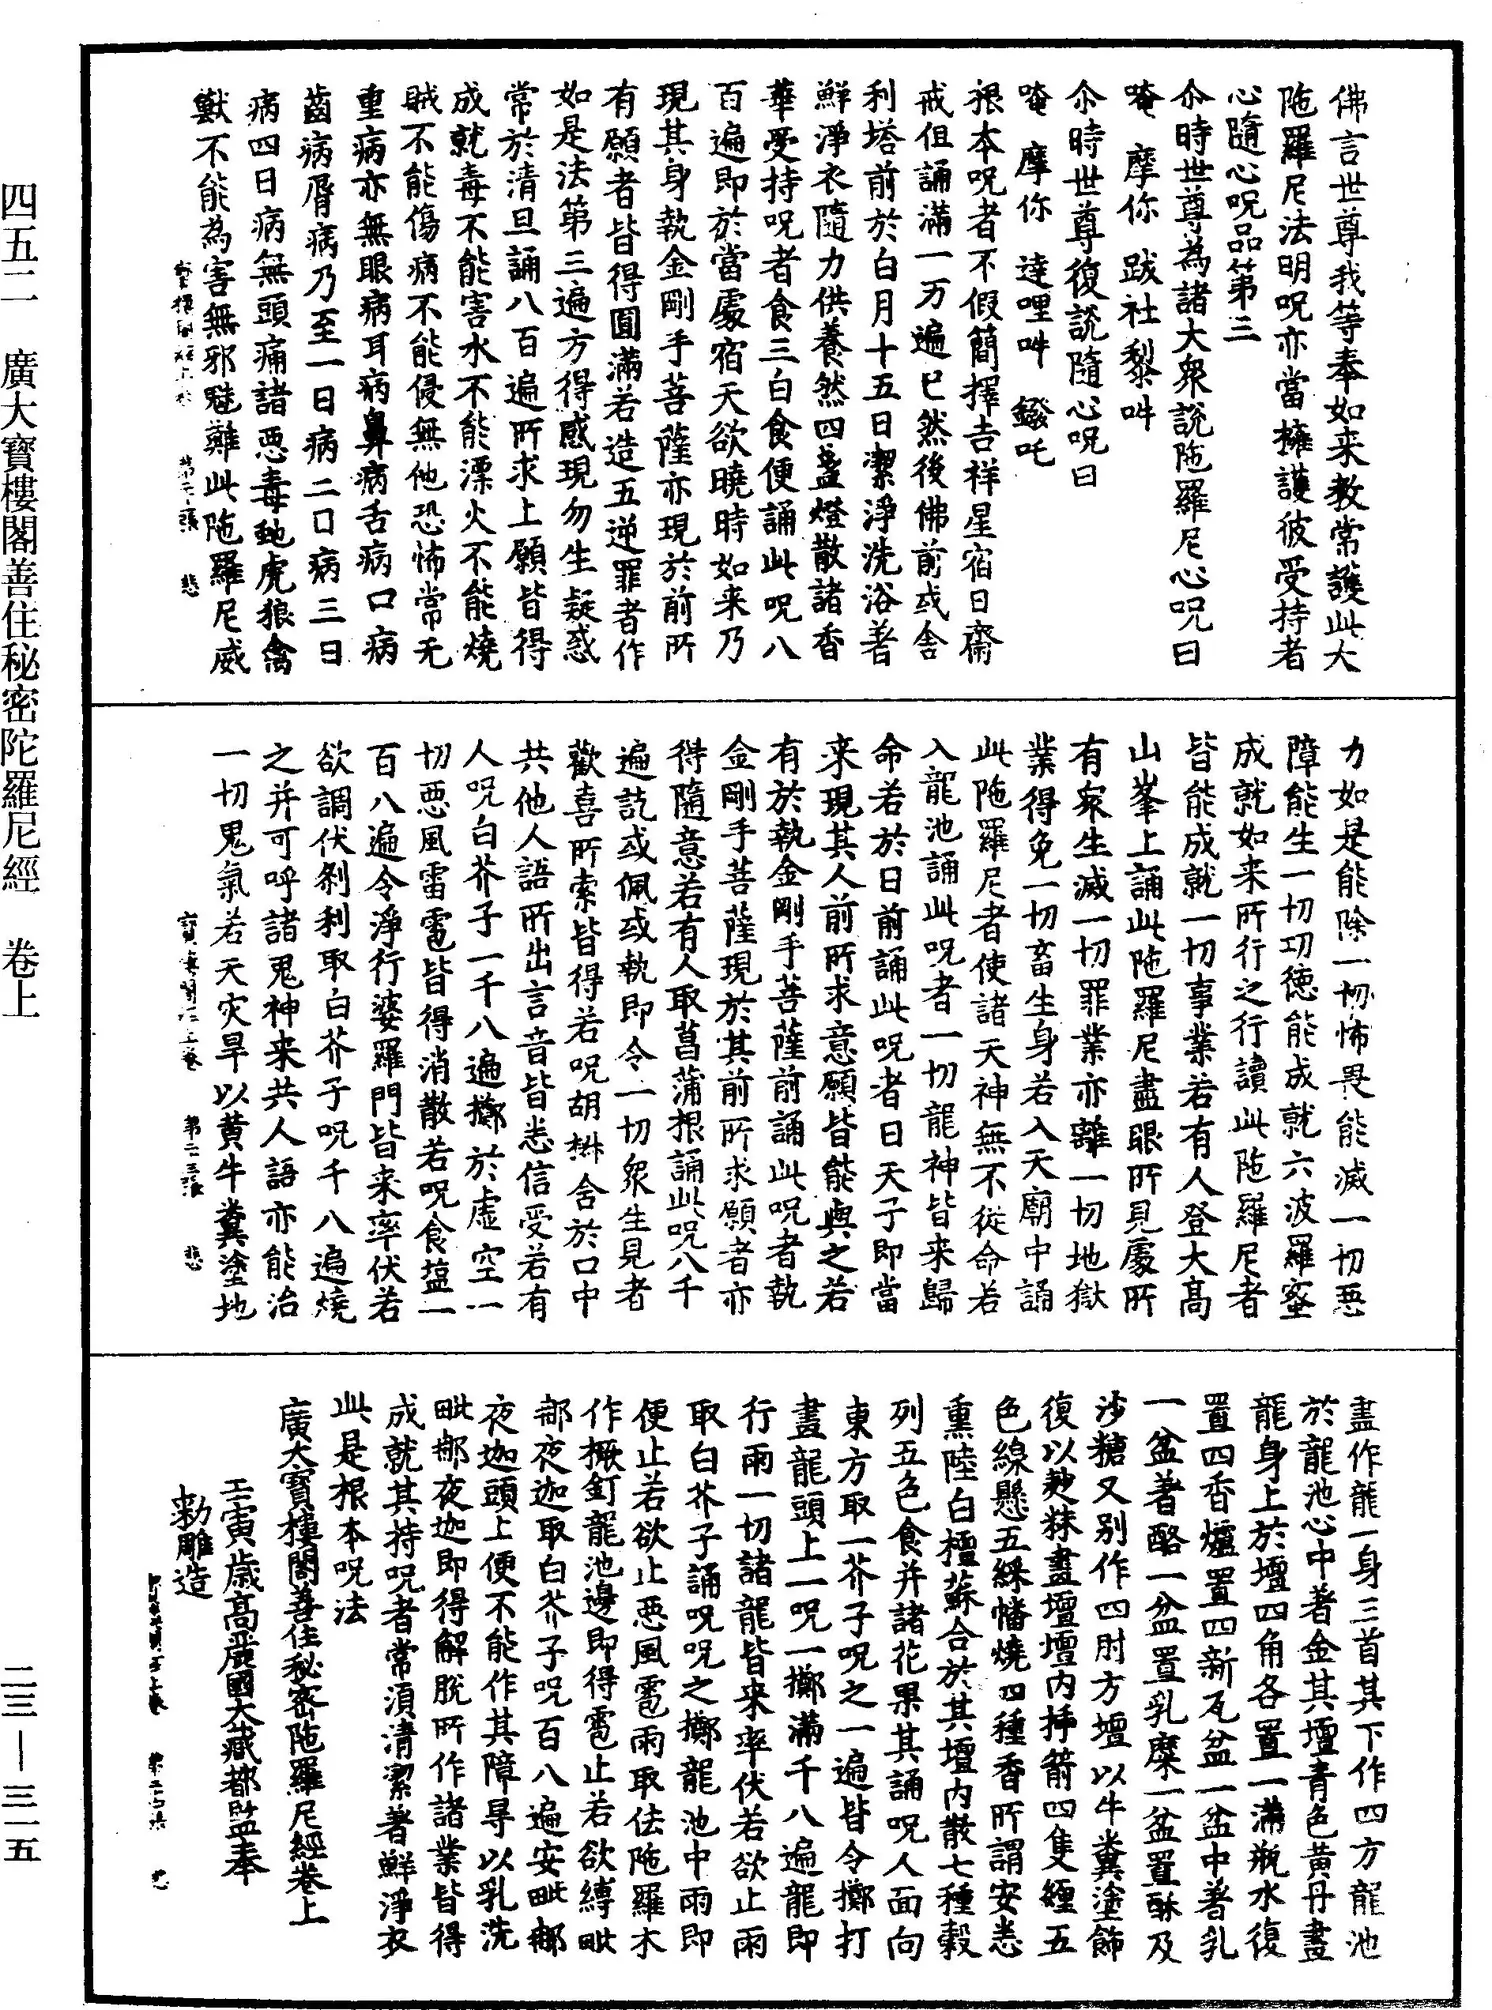 佛言世尊我等奉如来教常護此大
陁羅尼法明呪亦當擁護彼受持者
心隨心呪品第三
尒時世尊為諸大衆說陁羅尼心呪曰
唵 摩你 跋社黎吽
尒時世尊復說隨心呪曰
唵 摩你 達哩吽 鏺吒
根本呪者不假簡擇吉祥星宿日齋
戒但誦滿一万遍已然後佛前或舍
利塔前於白月十五日潔淨洗浴著
鮮淨衣隨力供養然四盞燈散諸香
華受持呪者食三白食便誦此呪八
百遍即於當處宿天欲曉時如来乃
現其身執金剛手菩薩亦現於前所
有願者皆得圓滿若造五逆罪者作
如是法第三遍方得感現勿生疑惑
常於清旦誦八百遍所求上願皆得
成就毒不能害水不能漂火不能燒
賊不能傷病不能侵無他恐怖常无
重病亦無眼病耳病鼻病舌病口病
齒病脣病乃至一日病二日病三日
病四日病無頭痛諸惡毒虵虎狼禽
獸不能為害無邪魅難此陁羅尼威
力如是能除一切怖畏能滅一切惡
障能生一切功德能成就六波羅蜜
成就如来所行之行讀此陁羅尼者
皆能成就一切事業若有人登大高
山峯上誦此陁羅尼盡眼所見處所
有衆生滅一切罪業亦離一切地獄
業得免一切畜生身若入天廟中誦
此陁羅尼者使諸天神無不從命若
入龍池誦此呪者一切龍神皆来歸
命若於日前誦此呪者日天子即當
来現其人前所求意願皆能與之若
有於執金剛手菩薩前誦此呪者執
金剛手菩薩現於其前所求願者亦
得隨意若有人取菖蒲根誦此呪八千
遍訖或佩或執即令一切衆生見者
歡喜所索皆得若呪胡椒舍於口中
共他人語所出言音皆悉信受若有
人呪白芥子一千八遍擲於虛空一
切惡風雷雹皆得消散若呪食塩一
百八遍令淨行婆羅門皆来率伏若
欲調伏刹利取白芥子呪千八遍燒
之并可呼諸鬼神来共人語亦能治
一切鬼氣若天灾旱以黄牛糞塗地
畫作龍一身三首其下作四方龍池
於龍池心中著金其壇青色黄丹畫
龍身上於壇四角各置一滿瓶水復
置四香爐置四新瓦盆一盆中著乳
一盆著酪一盆置乳糜一盆置酥及
沙糖又別作四肘方壇以牛糞塗飾
復以麨粖畫壇壇内挿箭四隻纏五
色線懸五綵幡燒四種香所謂安悉
熏陸白檀蘇合於其壇内散七種穀
列五色食并諸花果其誦呪人面向
東方取一芥子呪之一遍皆令擲打
畫龍頭上一呪一擲滿千八遍龍即
行雨一切諸龍皆来率伏若欲止雨
取白芥子誦呪呪之擲龍池中雨即
便止若欲止惡風雹雨取佉陁羅木
作橛釘龍池邊即得雹止若欲縛毗
那夜迦取白芥子呪百八遍安毗那
夜迦頭上便不能作其障导以乳洗
毗那夜迦即得解脫所作諸業皆得
成就其持呪者常須清潔著鮮淨衣
此是根本呪法
廣大寶樓閣善住秘密陁羅尼經卷上
壬寅歲高麗國大藏都監奉
勑雕造
四五二 廣大寶樓閣善住秘密陀羅尼經 卷上
二三—三一五